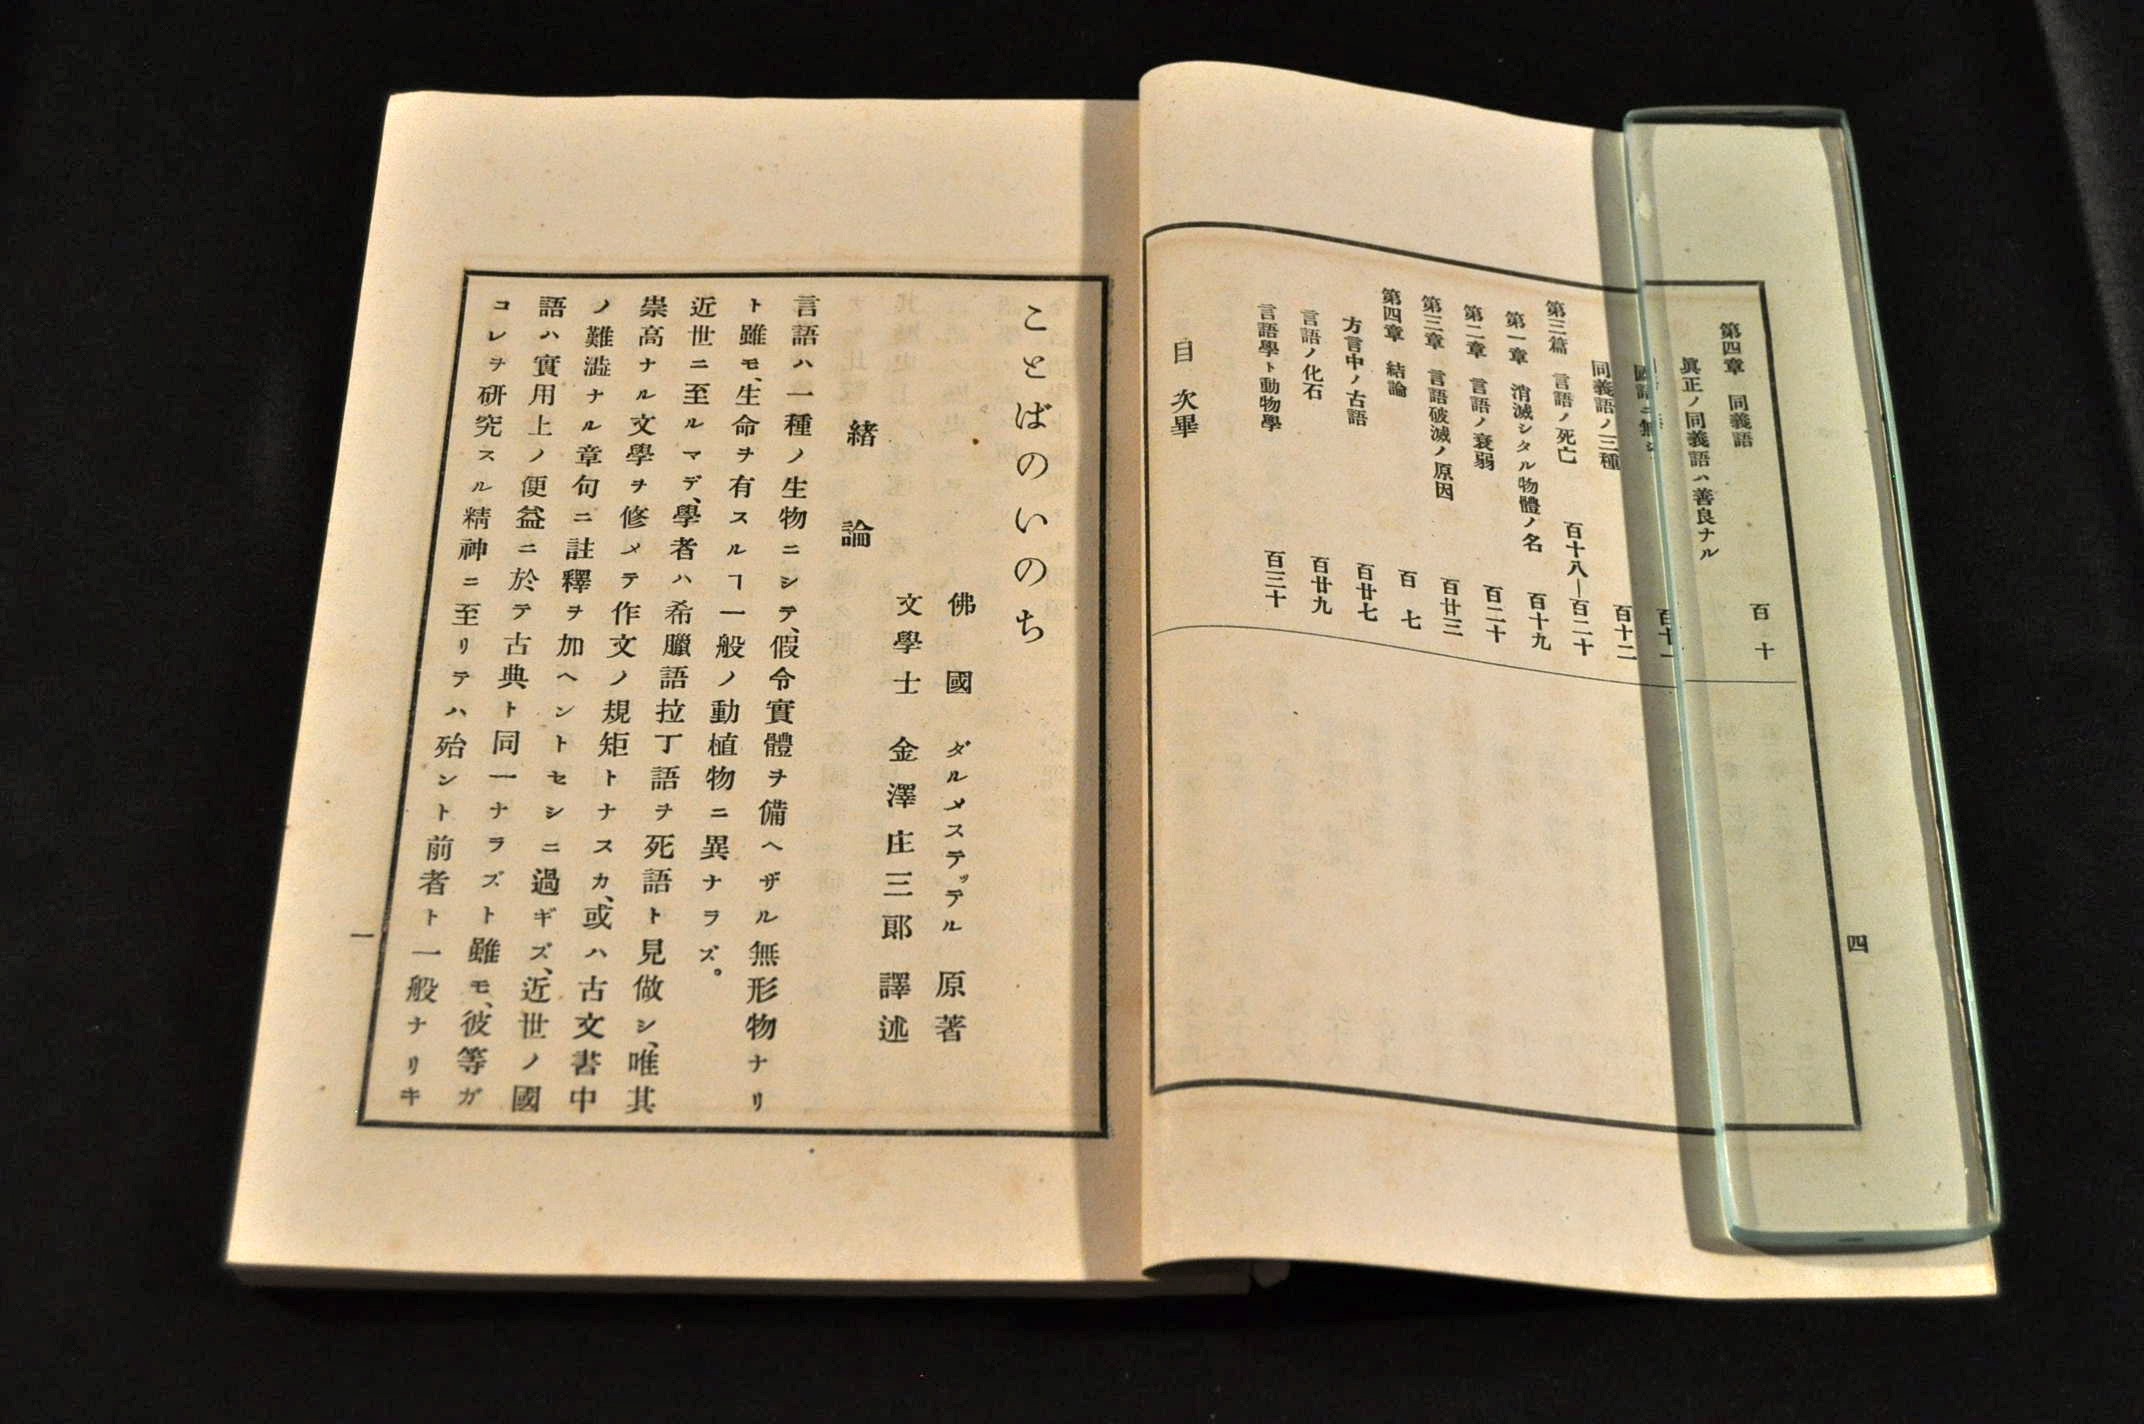 第四章 同義語 百十
眞正ノ同義語ハ善良ナル
國語ニ無シ 百十一
同義語ノ三種 百十二
第三篇 言語ノ死亡 百十八―百二十
第一章 消滅シタル物體ノ名 百十九
第二章 言語ノ衰弱 百二十
第三章 言語破滅ノ原因 百廿三
第四章 結論 百七
方言中ノ古語 百廿七
言語ノ化石 百廿九
言語學ト動物學 百三十
目次畢
四
ことばのいのち
佛國 ダルメステッテル 原著
文學士 金澤庄三郎 譯述
緒論
言語ハ一種ノ生物ニシテ、假令實體ヲ備ヘザル無形物ナリ
ト雖モ、生命ヲ有スルヿ一般ノ動植物ニ異ナラズ。
近世ニ至ルマデ、學者ハ希臘語拉丁語ヲ死語ト見做シ、唯其
崇高ナル文學ヲ修メテ作文ノ規矩トナスカ、或ハ古文書中
ノ難澁ナル章句ニ註釋ヲ加ヘントセシニ過ギズ、近世ノ國
語ハ實用上ノ便益ニ於テ古典ト同一ナラズト雖モ、彼等ガ
コレヲ研究スル精神ニ至リテハ殆ント前者ト一般ナリキ
一